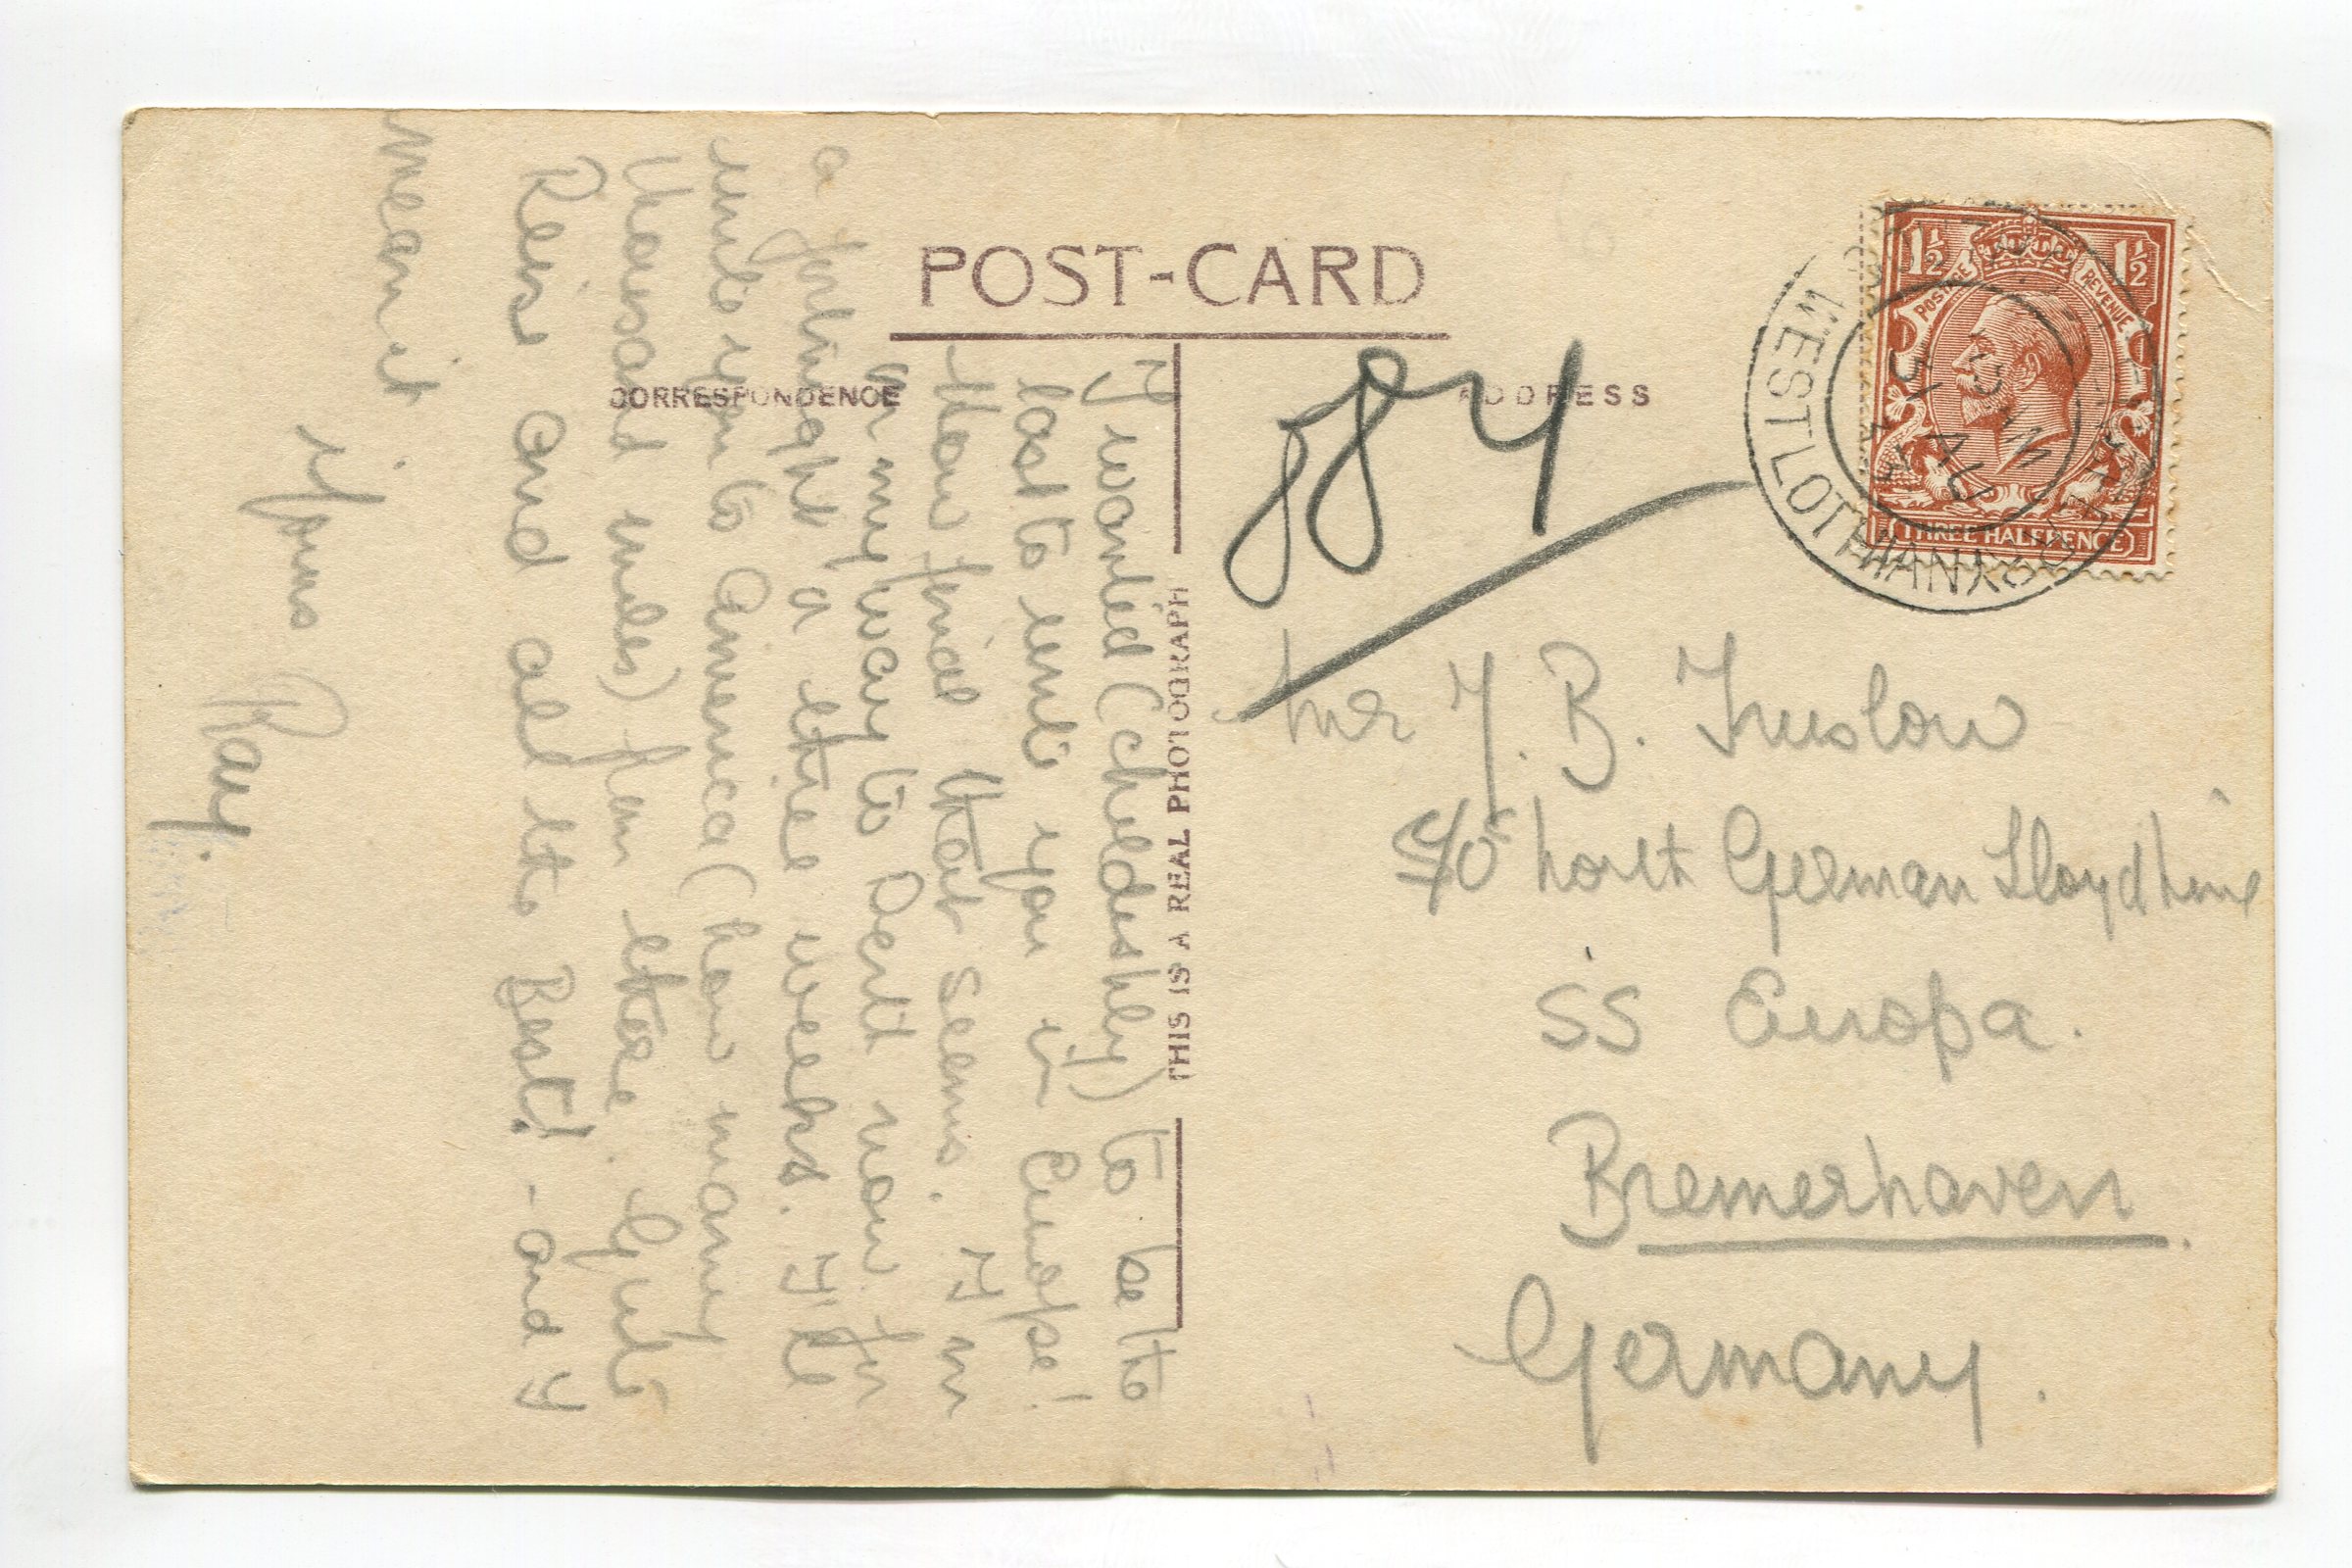 POST-CARD
CORRESPONDENCE
ADDRESS
THIS IS A REAL PHOTOGRAPH
I wanted (childishly) to be the
last to write you in Europe!
How final that seems. I'm
on my way to Deal now for
a fortnight a three weeks. I'll
write you to America (how many
thousand miles) from there. Gute
Reise and all the Best! - and I
mean it
Yours
Ray.
884
Mr J. B. Truslow
c/o North German Lloyd Line
SS Europa.
Bremerhaven.
Germany.
1½ 1½
POSTAGE REVENUE
THREE HALFPENCE
WEST LOTHIAN
3 PM
31 AU